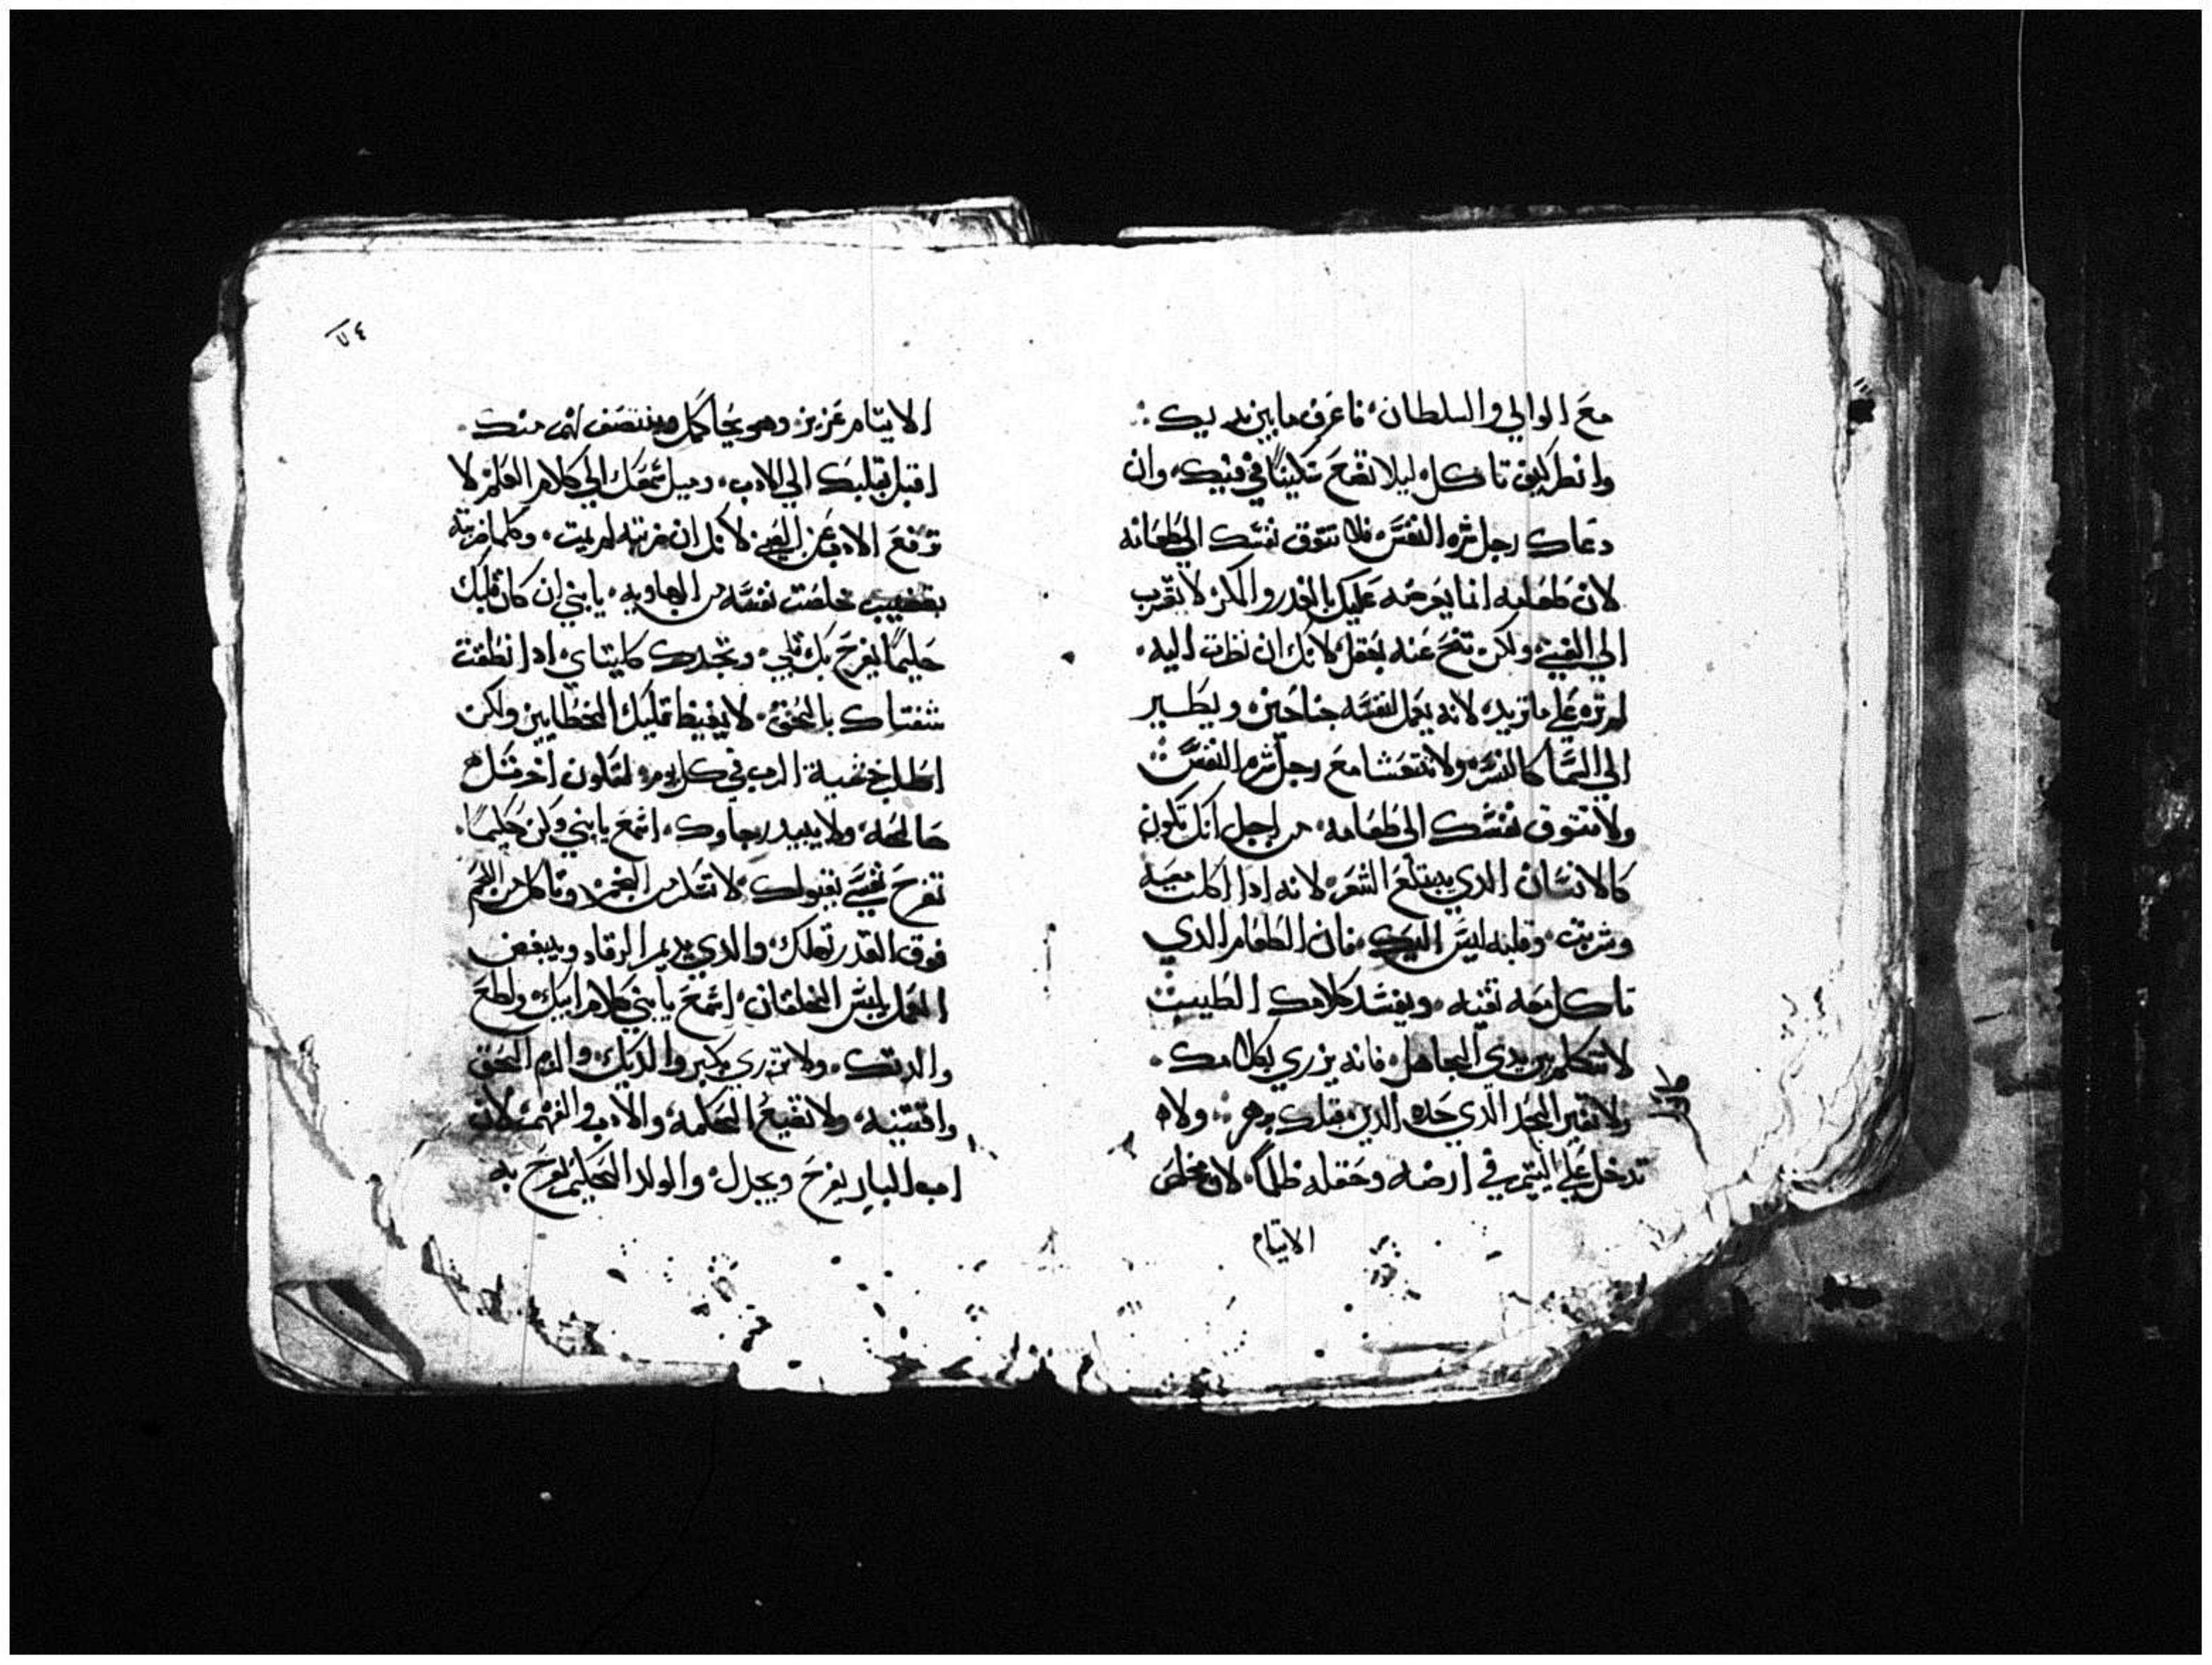 مع الوالي والسلطان فاعرف ما بين يديك
وانظر كيف تاكل ليلا تضع سكينا في فيك وان
دعاك رجل شره النفس فلا تتوق نفسك الي طعامه
لان طعامه انما يعرضه عليك بالغدر والمكر لا تقرب
الي الغني ولكن تنح عنه بعقل لانك ان نظرت اليه
لم تره علي ما تريد لانه يعمل لنفسه جناحين ويطير
الي السما كالنسر ولا تتعشا مع رجل شره النفس
ولا تتوق نفسك الي طعامه من اجل انك تكون
كالانسان الدي يبتلع الشعر لانه ادا اكلت معه
وشربت وقلبه ليس اليك فان الطعام الدي
تاكل معه تقيه ويفسد كلامك الطيب
لا تتكلم بين يدي الجاهل فانه يزري بكلامك
ولا تغير الحد الدي حده الدين قبلك بدهر ولا
تدخل علي اليتيم في ارضه وحقله ظلما لان مخلص
الايتام
٧٤
الايتام عزيز وهو يحاكمك وينتصف لهم منك
اقبل بقلبك الي الادب وميل سمعك الي كلام العلم لا
ترفع الادب عن الصبي لانك ان ضربته لم يمت وكلما ضربته
بقضيب خلصت نفسه من الهاويه يا بني ان كان قلبك
حليما يفرح بك قلبي وتجدك كليتاي ادا نطقت
شفتاك بالحق لا يغيظ قلبك الخطايين ولكن
اطلب خشية الرب في كل يوم لتكون اخرتك
صالحه ولا يبيد رجاوك اسمع يا بني وكن حكيما
تفرح نفسي بقبولك لا تسكر من الخمر وتاكل من اللحم
فوق القدر تهلك والدي يديم الرقاد ويبغض
العمل يلبس الخلقان اسمع يا بني كلام ابيك ولطع
والدتك ولا تزري بكبر والديك والزم الحق
واقتنيه ولا تضيع الحكمه والادب والفهم لان
اب البار يفرح ويجدل والولد الحكيم يفرح به